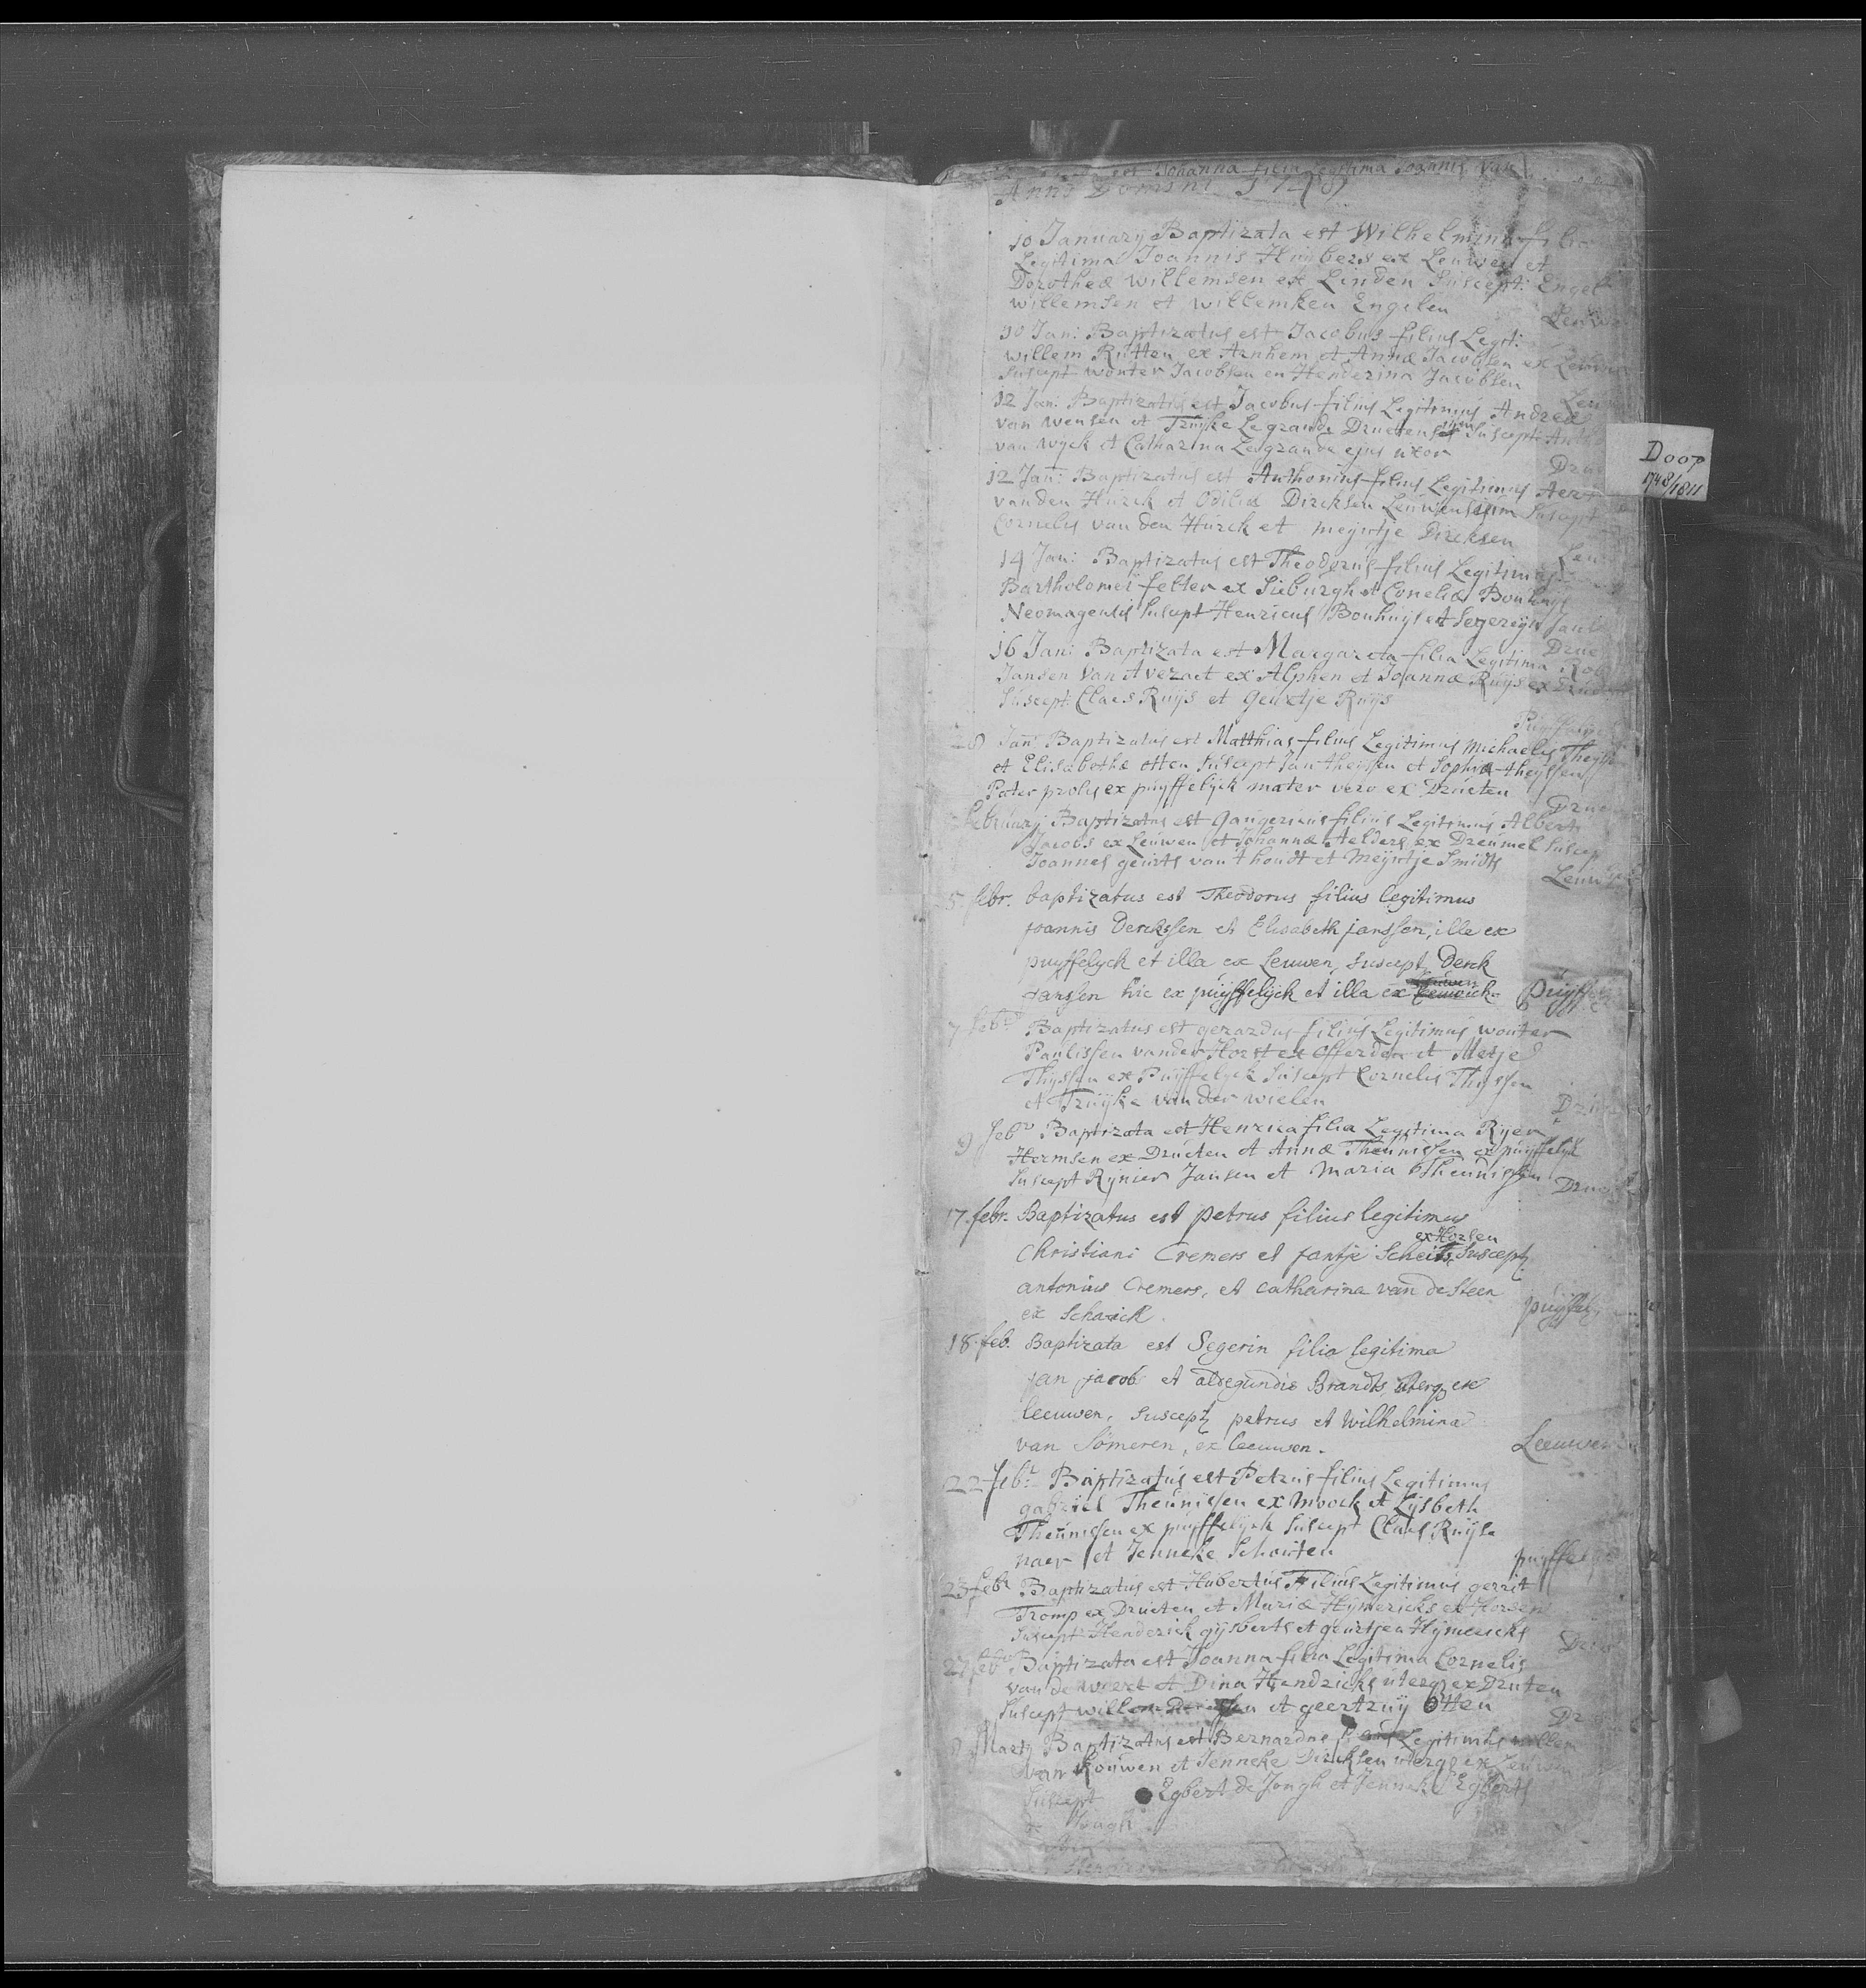 est Johanna filia Legitima Joannis van
Anno Domini 1748
10 January Baptizata est Wilhelmina filia
Legitima Joannis Huijbers ex Leuwen et
Dorotheæ willemsen ex Linden Suscept: Engel
willemsen et willemken Engelen
Leuwe
10 Jan: Baptizatus est Jacobus filius Legit:
willem Rutten ex Arnhem et Annæ Jacobsen ex Leuwen
Suscept wouter Jacobsen en Henderina Jacobsen
Leu
12 Jan: Baptizatus est Jacobus filius Legitimus Andreæ
van Wensen et Truijke Legrande Druetens Suscept: Anth
van Wyck et Catharina Legrande ejus uxor
Dru
12 Jan: Baptizatus est Anthonius filius Legitimus Aert
vanden Hurck et Odiliæ Dircksen Leuwensium Suscept
Cornelis van den Hurck et meijntje Dircksen
Leu
14 Jan: Baptizatus est Theodorus filius Legitimus
Bartholomeï felter ex Sieburgh et Corneliæ Bonhuijs
Neomagensis Suscept Henricus Bonhuijs et Segereijn
Drue
16 Jan: Baptizata est Margareta filia Legitima Rob
Jansen Van Avezaet ex Alphen et Joannæ Ruijs ex Drueten
Suscept: Claes Ruijs et Geurtje Ruijs
Puijffelijck
Jan: Baptizatus est Matthias filius Legitimus Michaelis Theijssen
et Elisabethæ otten Suscept Jan theijssen et Sophia theijssen
Pater prolis ex puijffelijck mater vero ex Drueten
Drue
february Baptizatus est Gangericus filius Legitimus Alberti
Jacobs ex Leuwen et Johannæ Aelders ex Dreumel Suscep
Joannes geurts van t houdt et Meijntje Smidts
Leuw
5 febr. baptizatus est Theodorus filius legitimus
joannis Derckssen et Elisabeth janssen, ille ex
puyffelyck et illa ex Leuwen, Suscept, Derck
Leuwen
Janssen hic ex puijffelijck et illa ex
puijffel
7 feb: Baptizatus est gerardus filius Legitimus wouter
Paulissen vander Horst ex Afferden et Metje
Thijssen ex Puijffelyck Suscept Cornelis Thijssen
et Truijke van der wielen
Drue
9 feb: Baptizata est Henrica filia Legitima Rijer
Hermsen ex Drueten et Annæ Theunissen ex puijffelijck
Suscept Rijnier Jansen et Maria Theunissen
Drue
17. febr. Baptizatus est petrus filius legitimus
ex Horsen
Christiani Cremers et jantje Suscept
antonius Cremers, et Catharina van de Steen
ex Schaick.
puijffel
18. feb. Baptizata est Segerin filia legitima
jan jacobs et aldegundis Brandts, uterq ex
leeuwen, Suscept petrus et Wilhelmina
van Someren, ex leeuwen.
Leeuwen
22 feb: Baptizatus est Petrus filius Legitimus
gabriel Theunissen ex Moock et Lijsbeth
Theunissen ex puijffelyck Suscept Claes Ruijse
naer et Jenneke Schouten
puijffel
23 feb: Baptizatus est Hubertus Filius Legitimus gerrit
Tromp ex Drueten et Mariæ Hijmericks ex Horsen
Suscept Henderick gijsberts et geurtjen Hijmericks
Dru
27 feb: Baptizata est Joanna filia Legitima Cornelis
van de weert et Dina Hendricks uterq ex Druten
Suscept willem et geertruij Otten
Dr
Marty Baptizatus est Bernardus Legitimus willem
van Kouwen et Jenneke Dircksen uterq ex Leuwen
Suscept Egbert de Jongh et Jenneke Egberts
Jongh
Doop
1748/1811